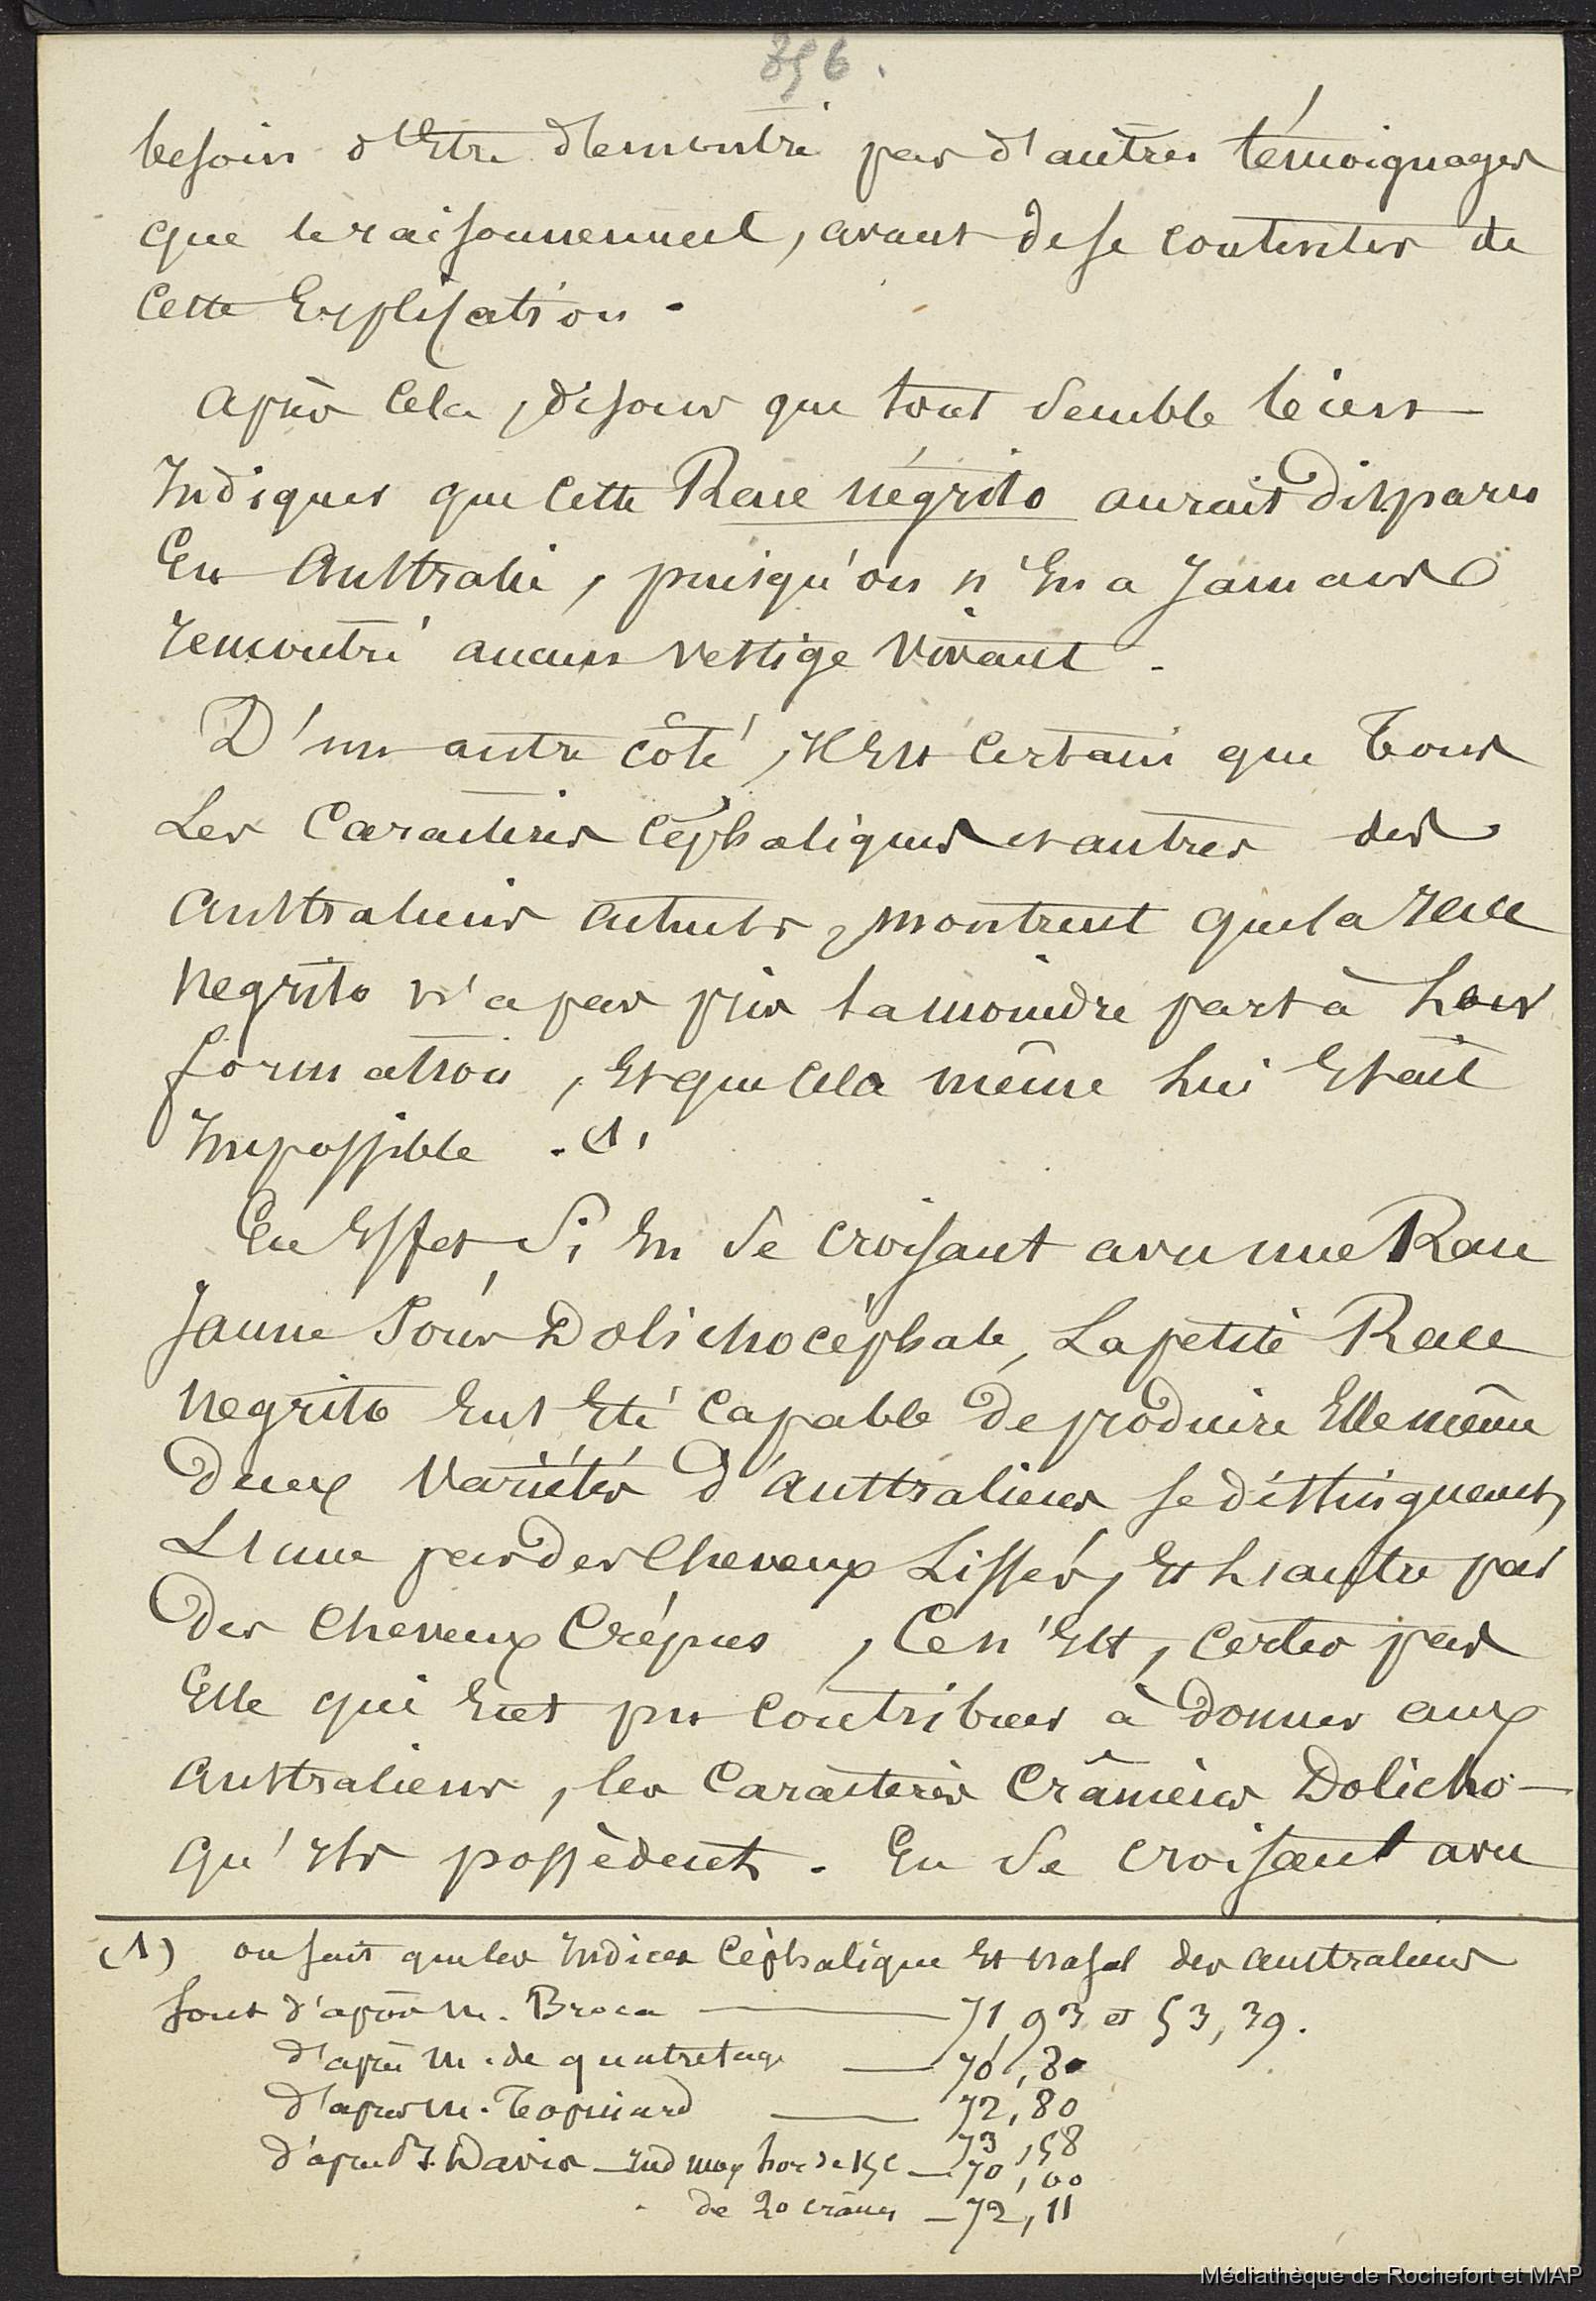 396.
besoin d'Etre demontré par d'autres témoignages
que le raisonnement, avant de se contenter de
Cette Explication.
après Cela, disons que tout Semble bien
Indiquer que Cette Race négrito aurait disparu
En Australie, puisqu'on n'En a Jamais
rencontré aucun vestige vivant.
D'un autre côté, Il Est Certain que Tous
Les Caractères Céphaliques et autres des
Australiens actuels, montrent que la race
negrito n'a pas pris la moindre part à Leur
formation, Et que Cela même Lui Etait
Impossible. (1)
En Effet, Si En Se croisant avec une Race
Jaune Sous Dolichocéphale, La petite Race
negrito Eut Eté Capable de produire Elle même
deux Variétés d'australiens se distinguant,
L'une par des Cheveux Lissés, Et L'autre par
des Cheveux Crépus, Ce n'Est, certes pas
Elle qui Eut pu Contribuer à donner aux
Australiens, les Caractères Crâniens Dolicho-
qu'Ils possèdent. En Se croisant avec
(1) on sait que les Indices Céphalique Et nasal des australiens
Sont d'après M. Broca — 71,93 et 53,39.
d'après M. de quatrefage — 70,80
d'après M. Topinard — 72,80
73,58
d'après J. Davis — Ind moy — 70,00
de 20 crânes — 72,11
Médiathèque de Rochefort et MAP